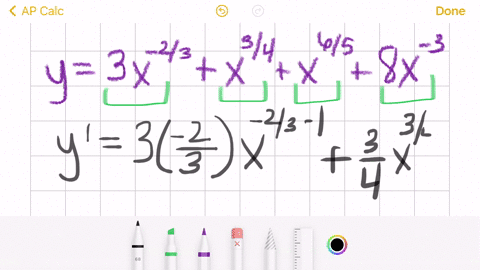 AP Calc
Done
y = 3x^-2/3 + x^3/4 + x^6/5 + 8x^-3
y' = 3(-2/3)x^-2/3-1 + 3/4 x^3/